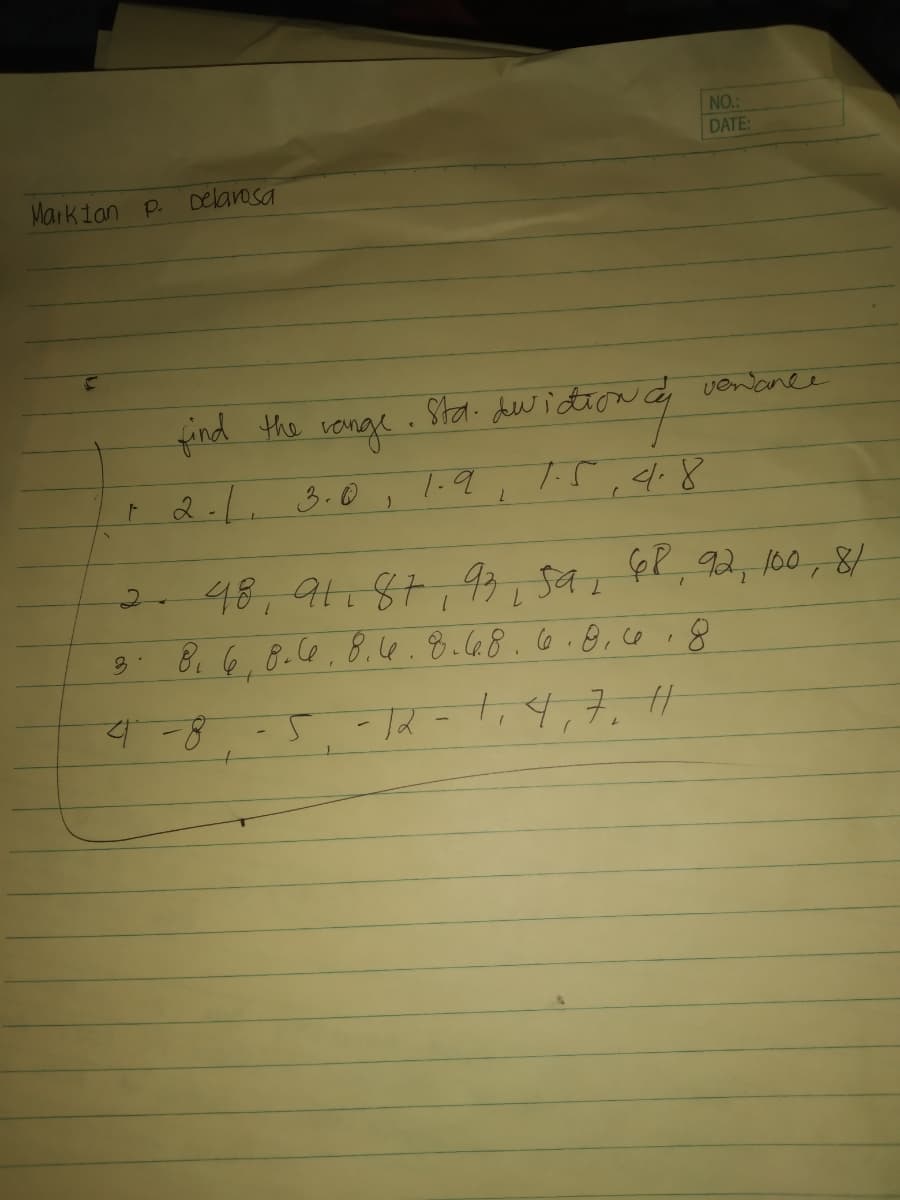 NO.:
DATE:
MarkIan P. Delarosa
find the range. Std. deviation & variance
1. 2.1, 3.0, 1.9, 1.5, 4.8
2. 48, 91, 87, 93, 59, 68, 92, 100, 81
3. 8, 6, 8.6, 8,6. 8.6.8. 6.8,6,8
4 -8, -5, -12 -1, 4, 7, 11